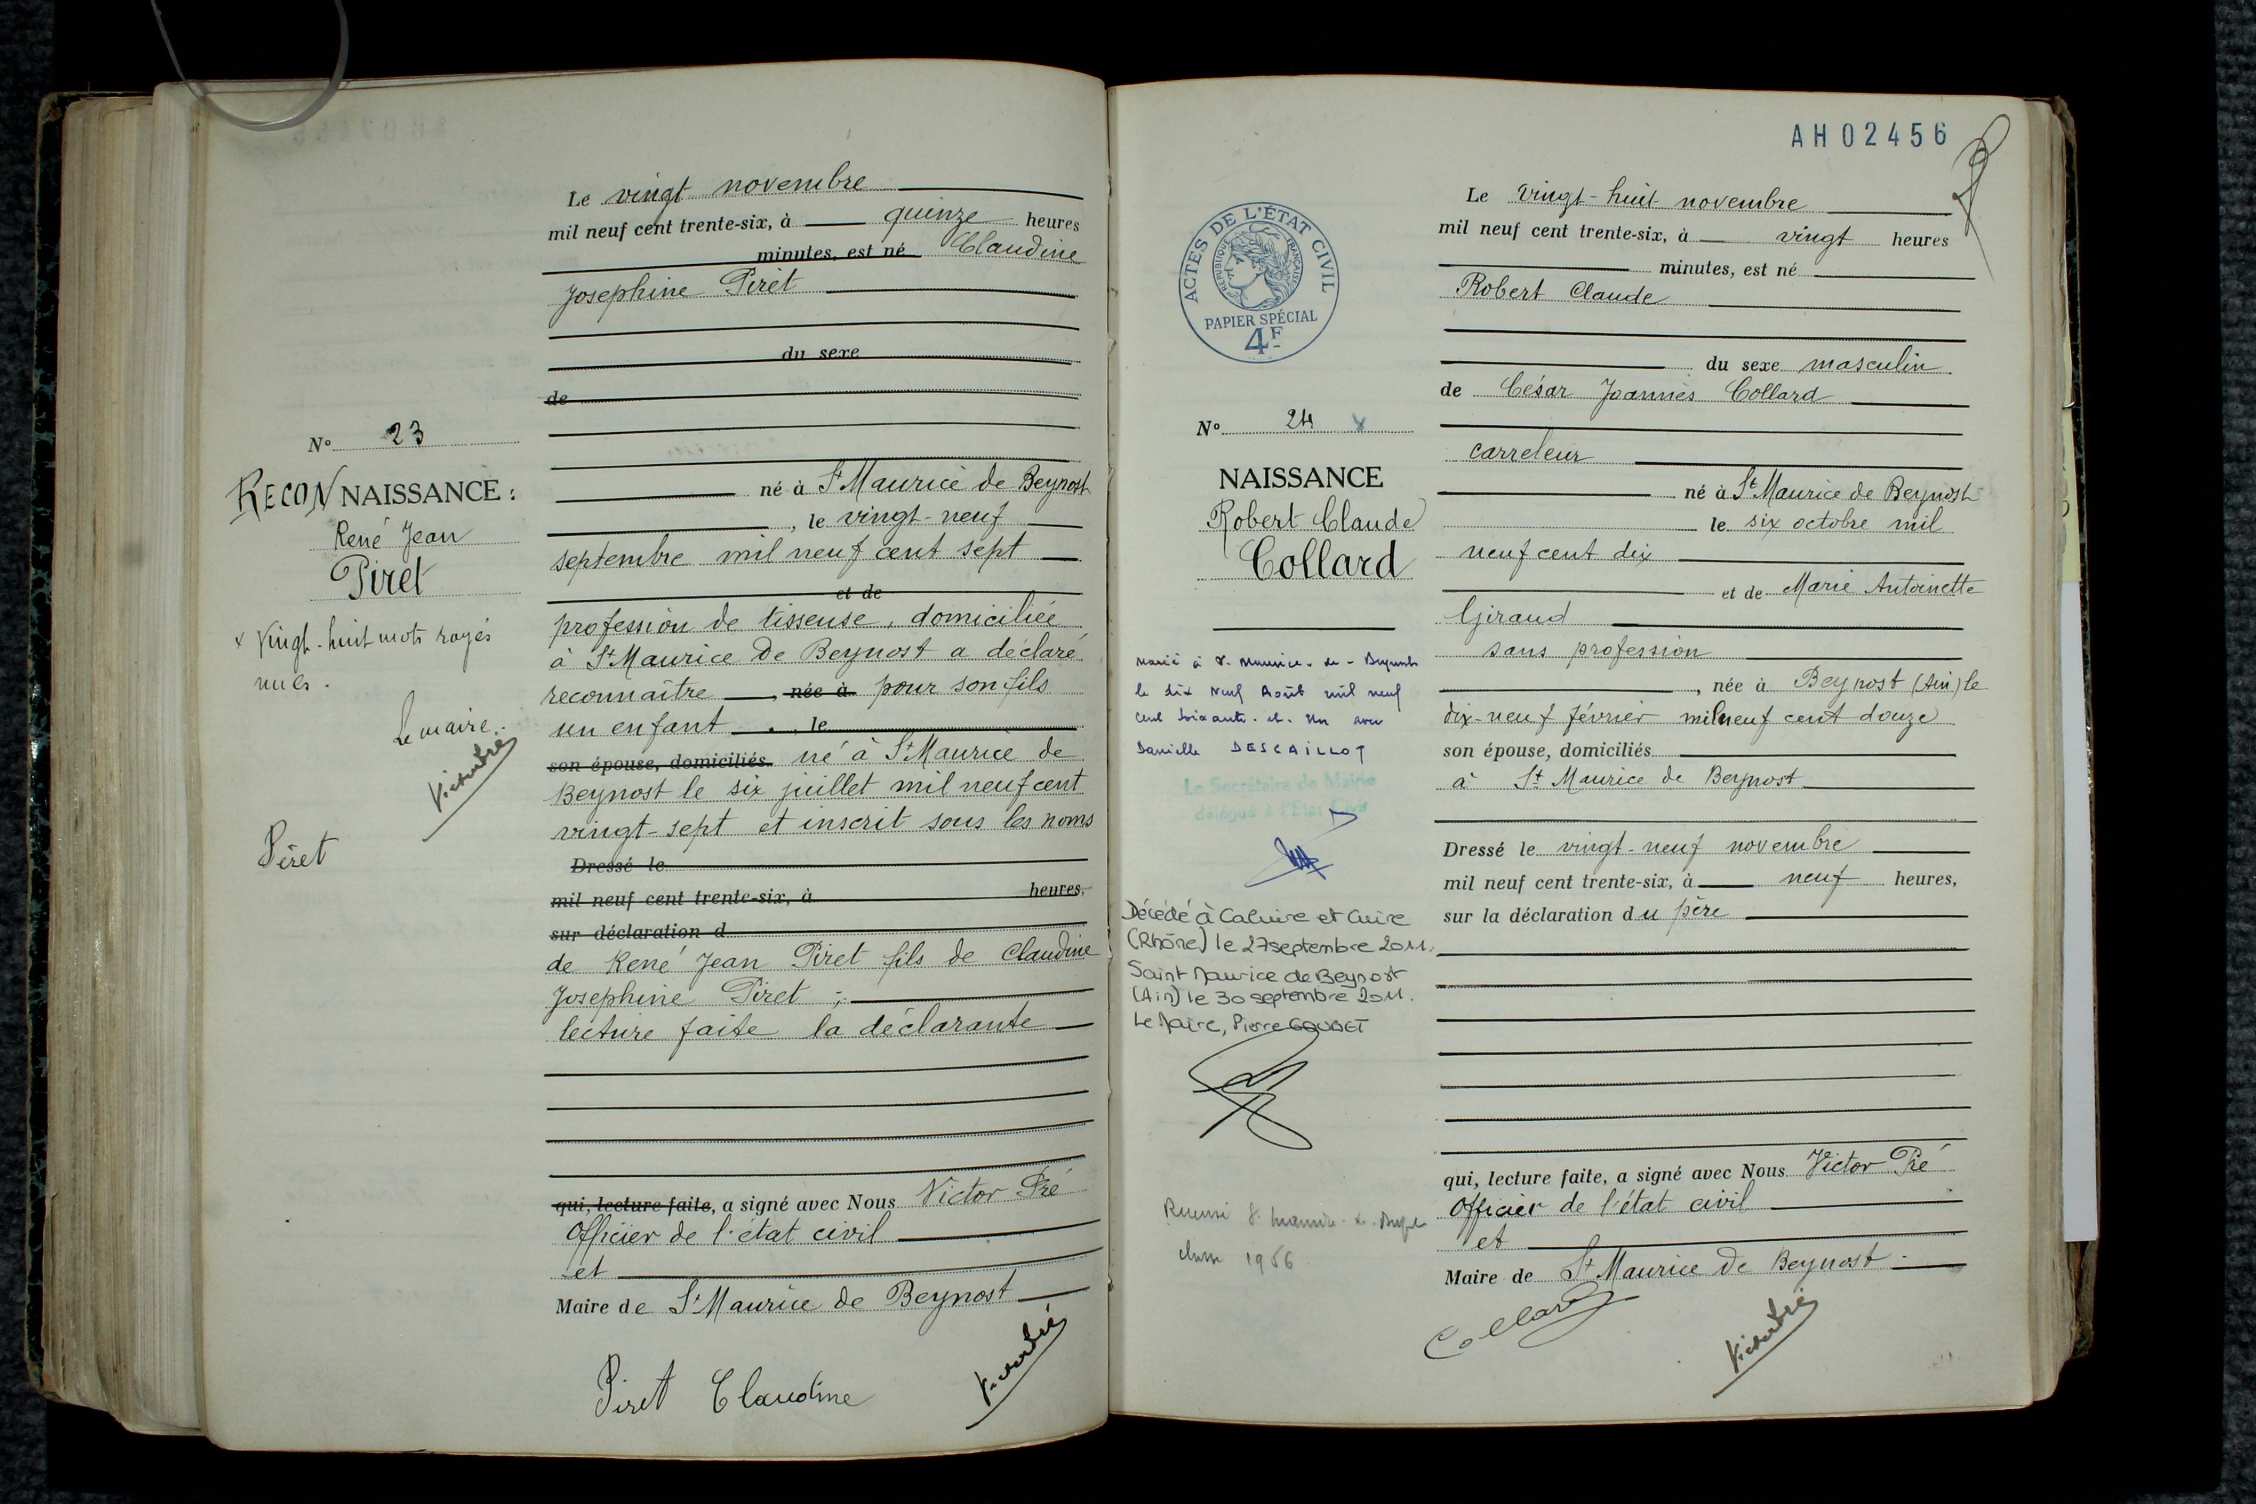 Le vingt novembre
mil neuf cent trente-six, à quinze heures
minutes, est né Claudine
Josephine Piret
du sexe
de
N° 23
RECONNAISSANCE :
René Jean
Piret
x Vingt-huit mots rayés
nuls.
Le maire :
Victor Pré
Piret
né à St Maurice de Beynost
, le vingt-neuf
septembre mil neuf cent sept
et de
profession de tisseuse, domiciliée
à St Maurice de Beynost a déclaré
reconnaître , née à pour son fils
un enfant , le
son épouse, domiciliés né à St Maurice de
Beynost le six juillet mil neuf cent
vingt-sept et inscrit sous les noms
Dressé le
mil neuf cent trente-six, à heures,
sur déclaration d
de René Jean Piret fils de Claudine
Josephine Piret ;
lecture faite la déclarante
qui, lecture faite, a signé avec Nous Victor Pré
Officier de l'état civil
et
Maire de St Maurice de Beynost
Piret Claudine
Victor Pré
AH02456
ACTES DE L'ÉTAT CIVIL
RÉPUBLIQUE FRANÇAISE
PAPIER SPÉCIAL
4F
N° 24
NAISSANCE
Robert Claude
Collard
Marié à St. Maurice-de-Beynost
le dix neuf Août mil neuf
cent soixante-et-un avec
Danielle DESCAILLOT
Le Secrétaire de Mairie
délégué à l'Etat Civil
Décédé à Caluire et Cuire
(Rhône) le 27 septembre 2011.
Saint Maurice de Beynost
(Ain) le 30 septembre 2011.
Le Maire, Pierre GOUBET
Recensé St. Maurice-de-Beynost
classe 1956
Le vingt-huit novembre
mil neuf cent trente-six, à vingt heures
minutes, est né
Robert Claude
du sexe masculin
de César Joannès Collard
carreleur
né à St Maurice de Beynost
le six octobre mil
neuf cent dix
et de Marie Antoinette
Giraud
sans profession
, née à Beynost (Ain) le
dix-neuf février mil neuf cent douze
son épouse, domiciliés
à St Maurice de Beynost
Dressé le vingt-neuf novembre
mil neuf cent trente-six, à neuf heures,
sur la déclaration du père
qui, lecture faite, a signé avec Nous Victor Pré
Officier de l'état civil
et
Maire de St Maurice de Beynost.
Collard
Victor Pré